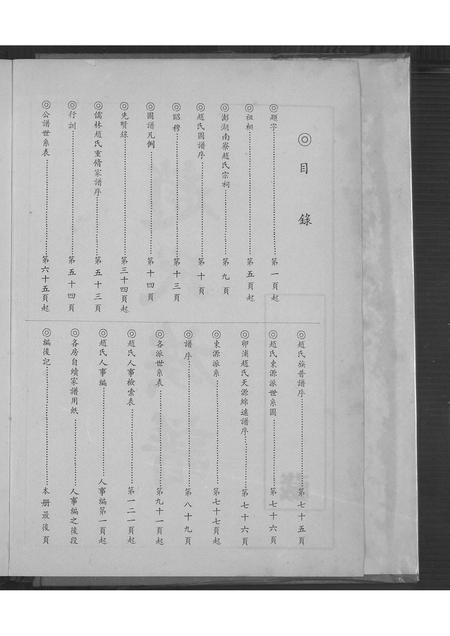 ◎目錄
◎題字……第一頁起
◎祖祠……第五頁起
◎澎湖南寮趙氏宗祠……第九頁
◎趙氏團譜序……第十頁
◎昭穆……第十三頁
◎團譜凡例……第十四頁
◎先明錄……第三十四頁起
◎儒林趙氏重脩家譜序……第五十三頁
◎行訓……第五十四頁
◎公譜世系表……第六十五頁起
◎趙氏族普譜序……第七十五頁
◎趙氏東源派世系圖……第七十六頁
◎卯浦趙氏天源綿遠譜序……第七十六頁
◎東源派系……第七十七頁起
◎譜序……第八十九頁
◎各派世系表……第九十一頁起
◎趙氏人事檢索表……第一二一頁起
◎趙氏人事編……人事編第一頁起
◎各房自續家譜用紙……人事編之後段
◎編後記……本冊最後頁